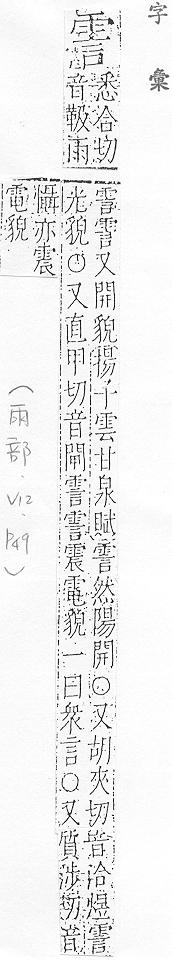 字彙
霅
悉合切
音靸雨
霅霅又開貌揚子雲甘泉賦霅然陽開○又胡夾切音洽煜霅
光貌○又直甲切音閘霅霅震電貌一曰衆言○又質涉切音
懾亦震
電貌
(雨部.V12.P49)